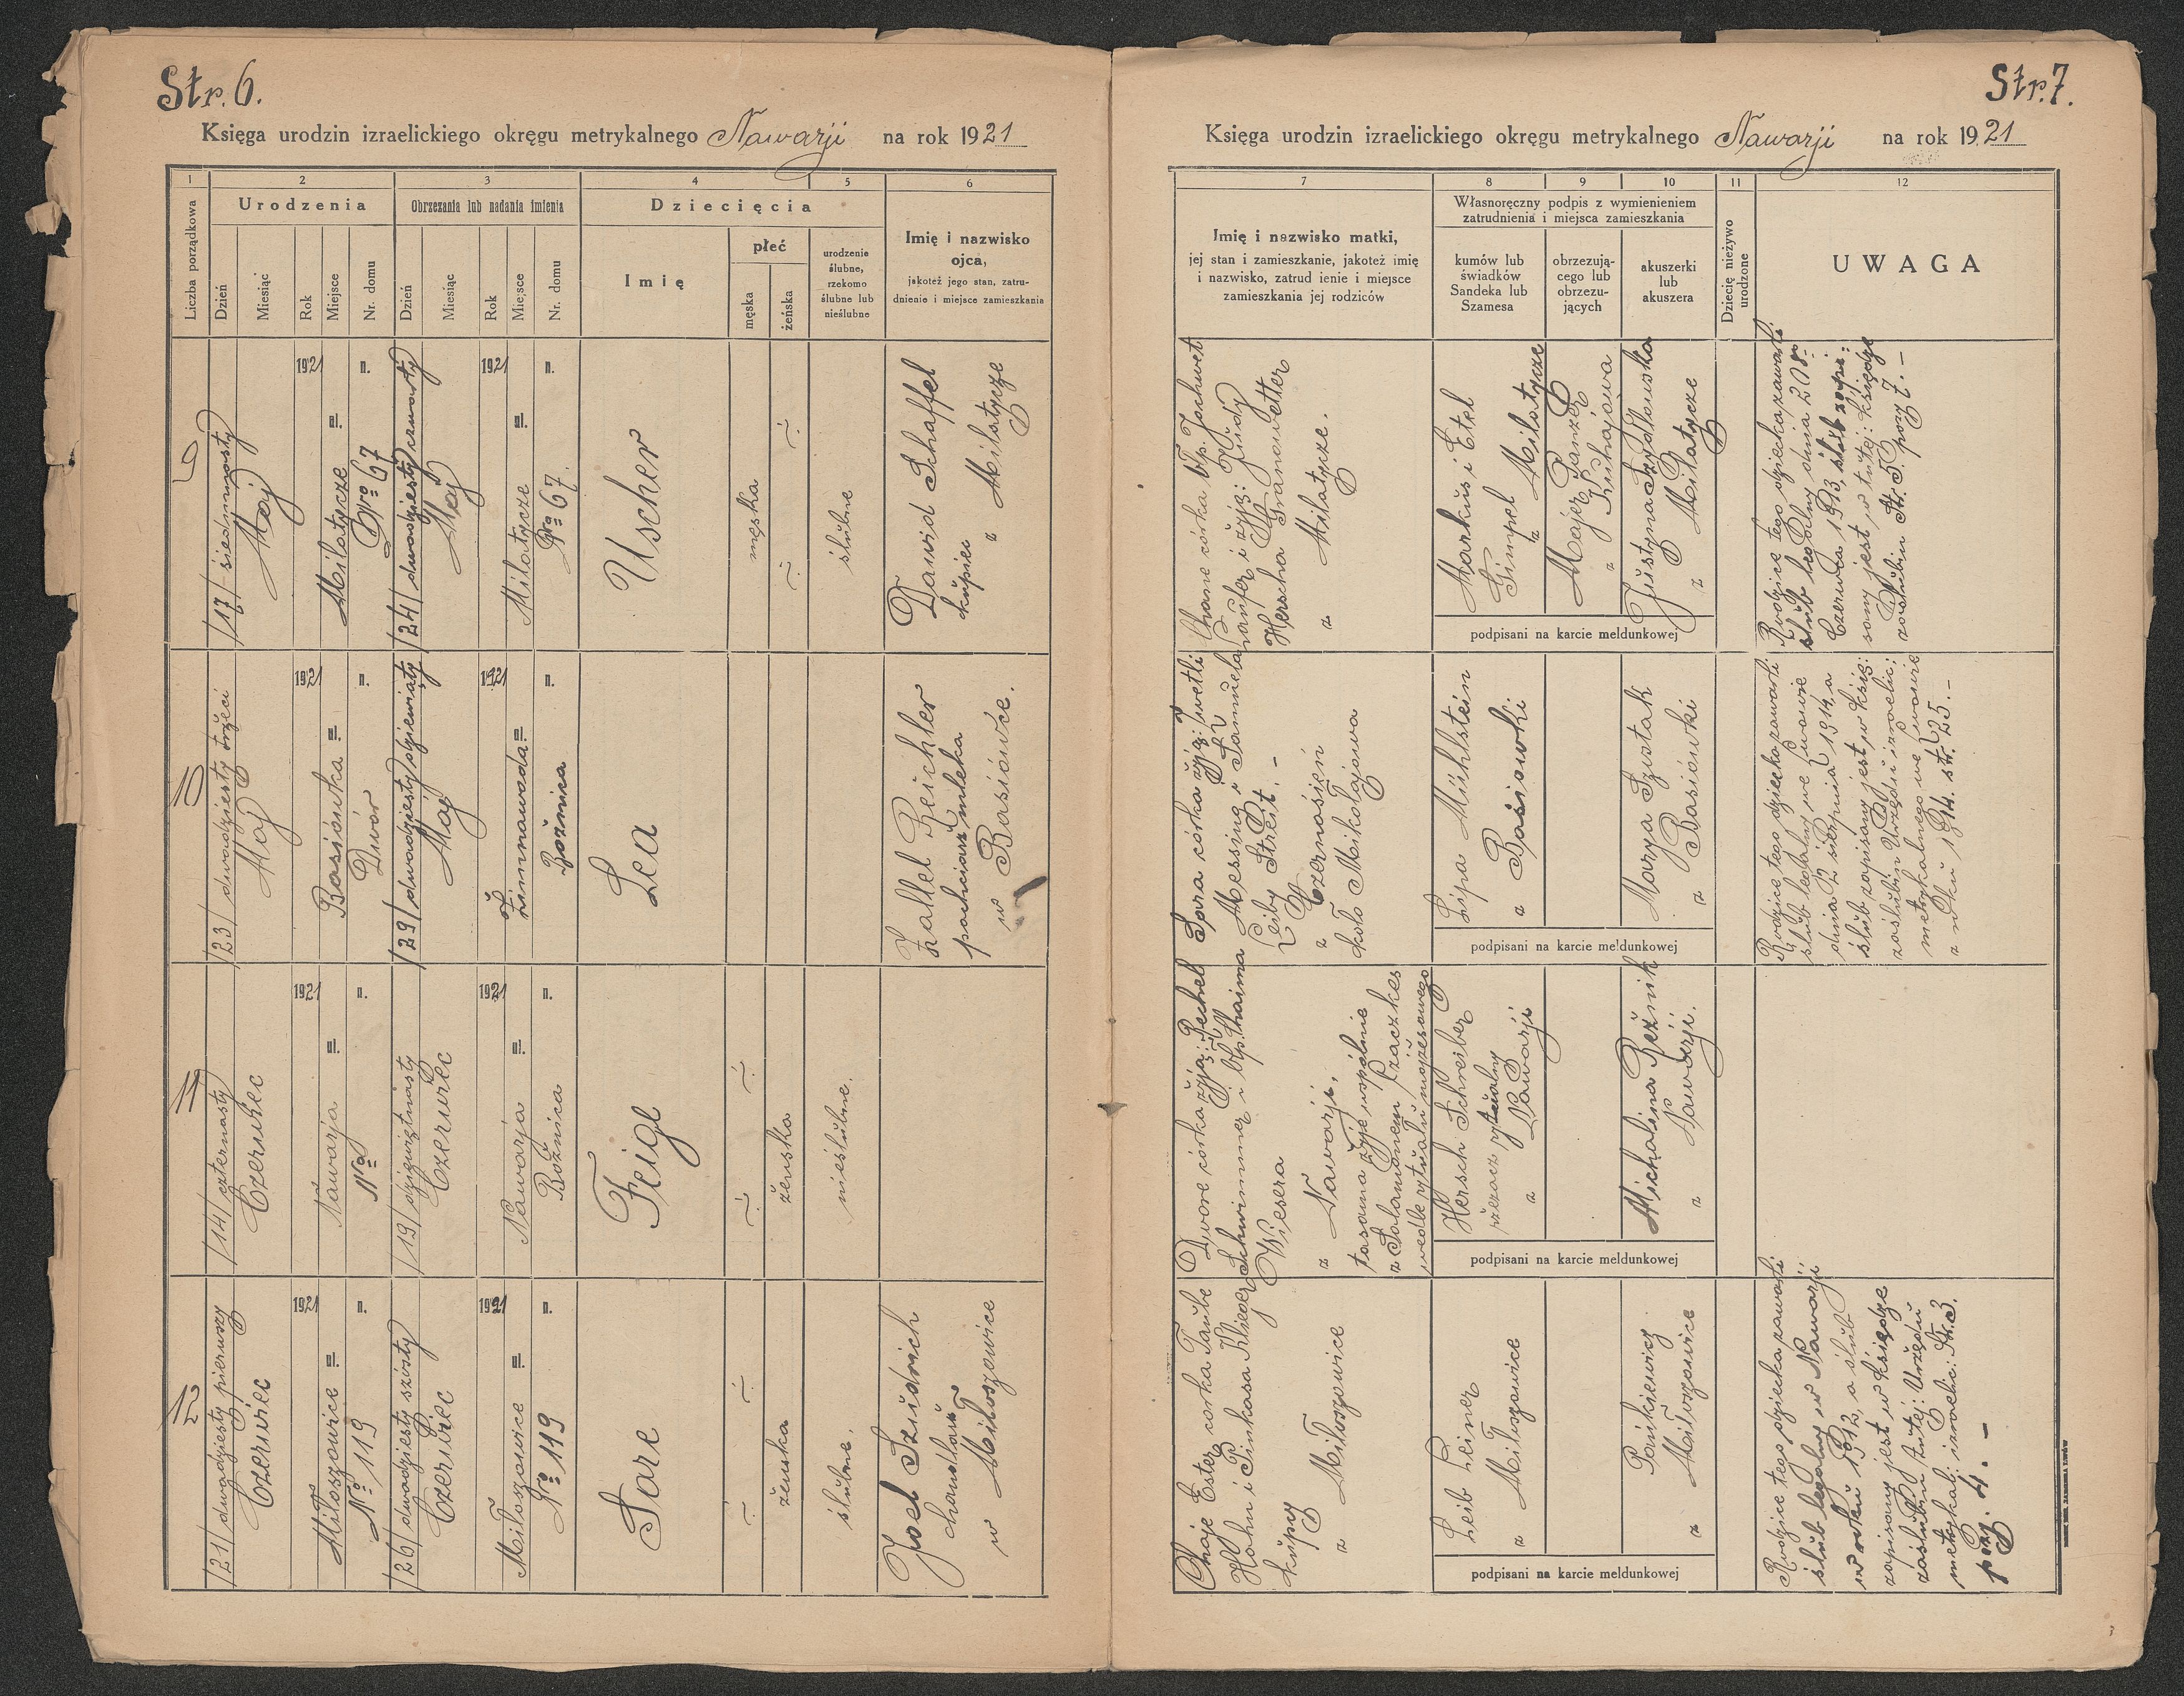 Str. 6.
Księga urodzin izraelickiego okręgu metrykalnego Nawarji na rok 1921
1
2
3
4
5
6
Liczba porządkowa
Urodzenia
Obrzezania lub nadania imienia
Dziecięcia
Imię i nazwisko
ojca,
jakoteż jego stan, zatru-
dnienie i miejsce zamieszkania
Dzień
Miesiąc
Rok
Miejsce
Nr. domu
Dzień
Miesiąc
Rok
Miejsce
Nr. domu
Imię
płeć
męska
żeńska
urodzenie
ślubne,
rzekomo
ślubne lub
nieślubne
9
/17/ siedmnasty
Maj
1921
Miłatycze =
n.
Nro 67
/24/ dwudziesty czwarty
Maj
1921
Miłatycze =
n.
Nro 67.
Uscher
męska
ślubne
Dawid Schaffel
kupiec
z Miłatycze
10
/23/ dwudziesty trzeci
Maj
1921
Basiówka =
n.
Dwór
/29/ dwudziesty dziewiąty
Maj
1921
Zimnawoda =
n.
Bożnica
Lea
Zallel Reichler
pachciarz mleka
w Basiówce.
11
/14/ czternasty
Czerwiec
1921
Nawarja =
n.
/19/ dziewiętnasty
Czerwiec
1921
Nawarja =
n.
Bożnica
Feige
żeńska
nieślubne.
12
/21/ dwudziesty pierwszy
Czerwiec
1921
Miłoszowice =
n.
No 119
/26/ dwudziesty szósty
Czerwiec
1921
Miłoszowice =
n.
No 119
Sare
żeńska
ślubne.
Joel Szudrich
handlarz
w Miłoszowice
Str. 7.
Księga urodzin izraelickiego okręgu metrykalnego Nawarji na rok 1921
7
8
9
10
11
12
Imię i nazwisko matki,
jej stan i zamieszkanie, jakoteż imię
i nazwisko, zatrud ienie i miejsce
zamieszkania jej rodziców
Własnoręczny podpis z wymienieniem
zatrudnienia i miejsca zamieszkania
kumów lub
świadków
Sandeka lub
Szamesa
obrzezują-
cego lub
obrzezu-
jących
akuszerki
lub
akuszera
Dziecię nieżywo
urodzone
UWAGA
Chane córka błp. Jochwet
Laufer i żyj: Judy
Herscha Granowetter
z Miłatycze.
Markus i Etel
Gimpel
z Miłatycze
Majer Panzer
z Kuhajowa
Justyna Szydłowska
z Miłatycze
podpisani na karcie meldunkowej
Rodzice tego dziecka zawarli
ślub legalny dnia 20go
Czerwca 1913, ślub zapi:
sany jest w tutej: księdze
zaślubin Str. 5. poz 7. –
Sara córka żyj: Jwetli
Messing i Samuela
Leiby Strest. –
z Czernośien
koło Mikołajowa
Lipa Mühlstein
z Basiowki
Marya Szustak
z Basiówki
podpisani na karcie meldunkowej
Rodzice tego dziecka zawarli
ślub legalny we Lwowie
dnia 2 sierpnia 1914, a
ślub zapisany jest w księg:
zaślubin Urzędu izraelic:
metrykalnego we Lwowie
z roku 1914. str. 25. –
Dwore córka żyj: Rechel
Schwimmer i błp. Chaima
Wiesera
z Nawarji,
tasama żyje wspólnie
z Salamonem Praczkes
wedle rytuału mojżeszowego
Hersch Schreiber
rzezacz rytualny
z Nawarji
Michalina Reźnik
z Nawarji.
podpisani na karcie meldunkowej
Chaje Ester córka Taube
Hahn i Pinkasa Flieger
kupcy
z Miłoszowice
Leib Leiner
z Miłoszowice
Pańkiewicz
z Miłoszowice
podpisani na karcie meldunkowej
Rodzice tego dziecka zawarli
ślub legalny w Nawarji
w roku 1912, a ślub
zapisany jest w księdze
zaślubin tutej: Urzędu
metrykal: izraelic: Str. 3.
poz. 4. –